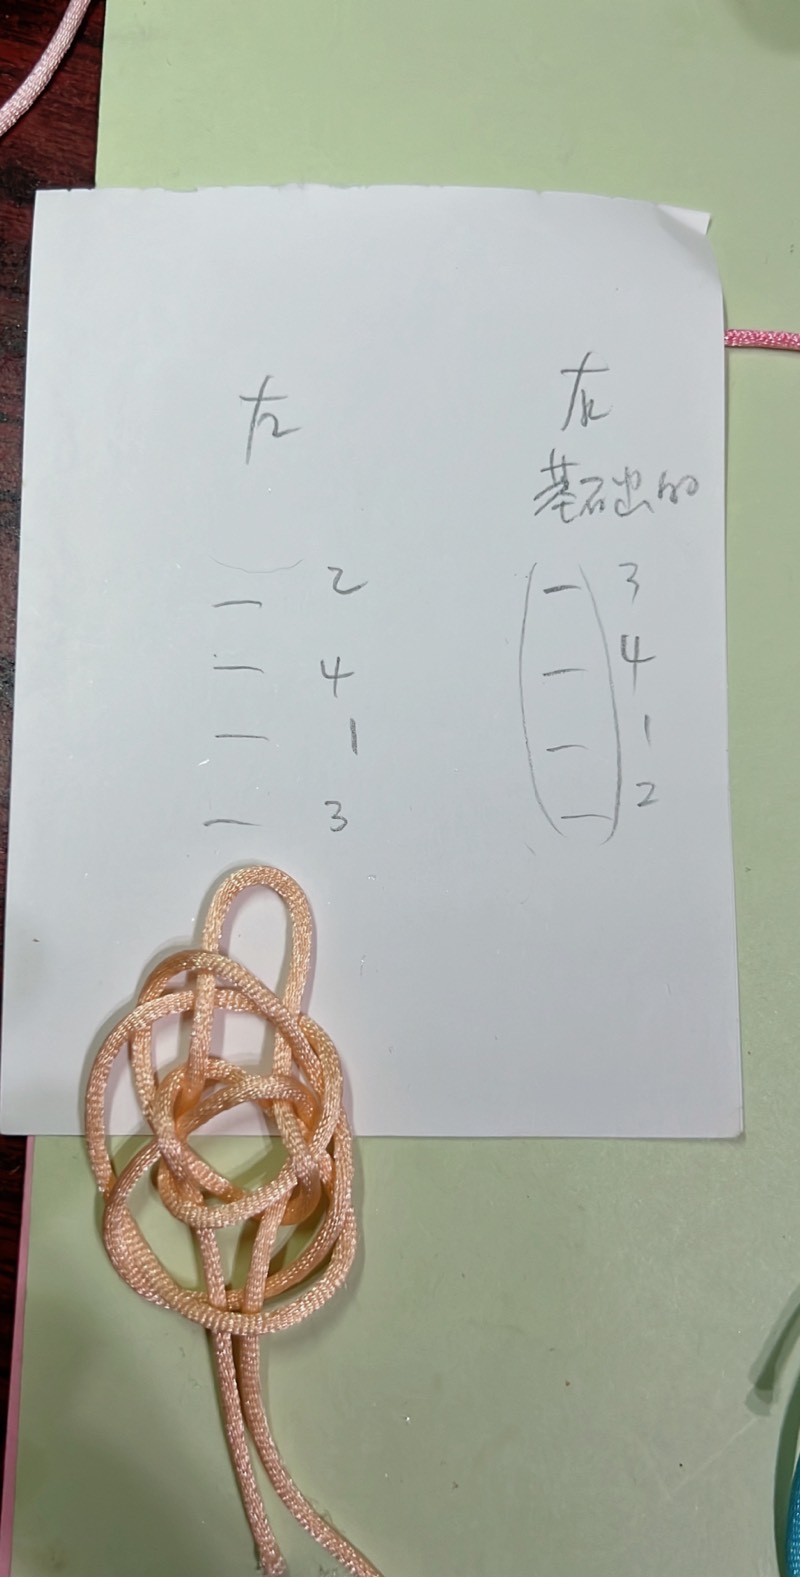 左 右
基础的
— 2 — 3
— 4 — 4
— 1 — 1
— 3 — 2